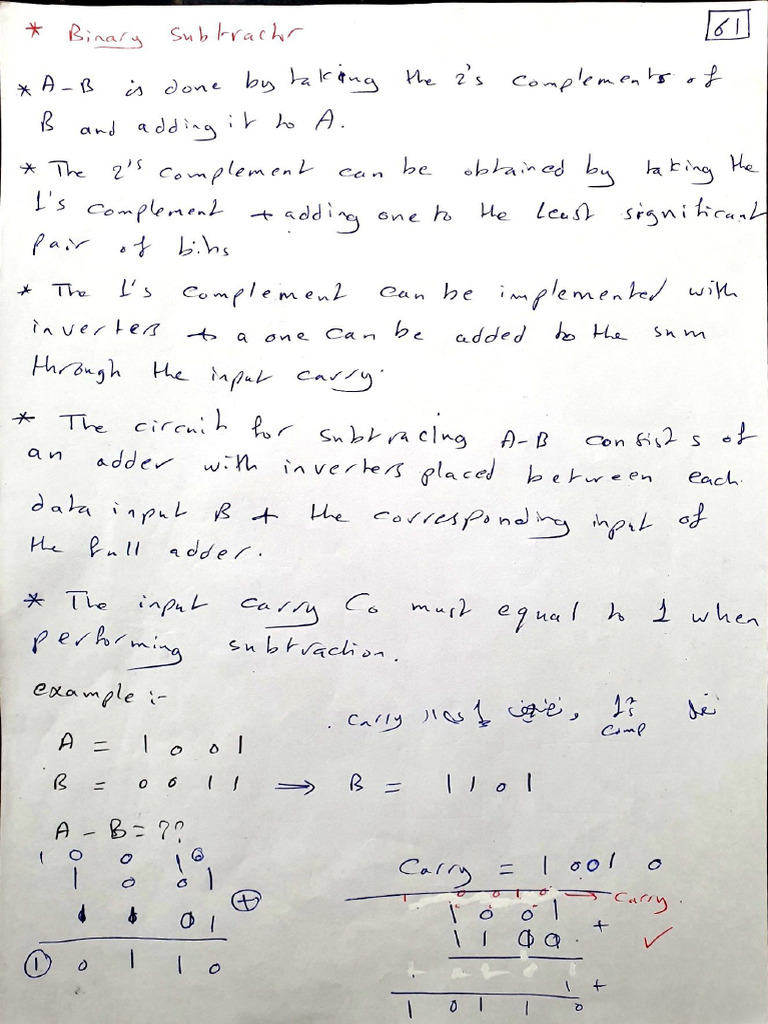 61
* Binary Subtractr
* A-B is done by taking the 2's complements of
B and adding it to A.
* The 2's complement can be obtained by taking the
1's complement + adding one to the least significant
pair of bits
* The 1's complement can be implemented with
inverters + a one can be added to the sum
through the input carry.
* The circuit for subtracing A-B consists of
an adder with inverters placed between each
data input B + the corresponding input of
the full adder.
* The input carry Co must equal to 1 when
performing subtraction.
example :-
carry 1 1's comp
A = 1 0 0 1
B = 0 0 1 1 ⟹ B = 1 1 0 1
A - B = ??
1 0 0 1 0
1 0 0 1
1 1 0 1 +
1 0 1 1 0
Carry = 1 001 0
1 0 0 1 0 → carry.
1 0 0 1
1 1 0 0 + ✓
1 +
1 0 1 1 0